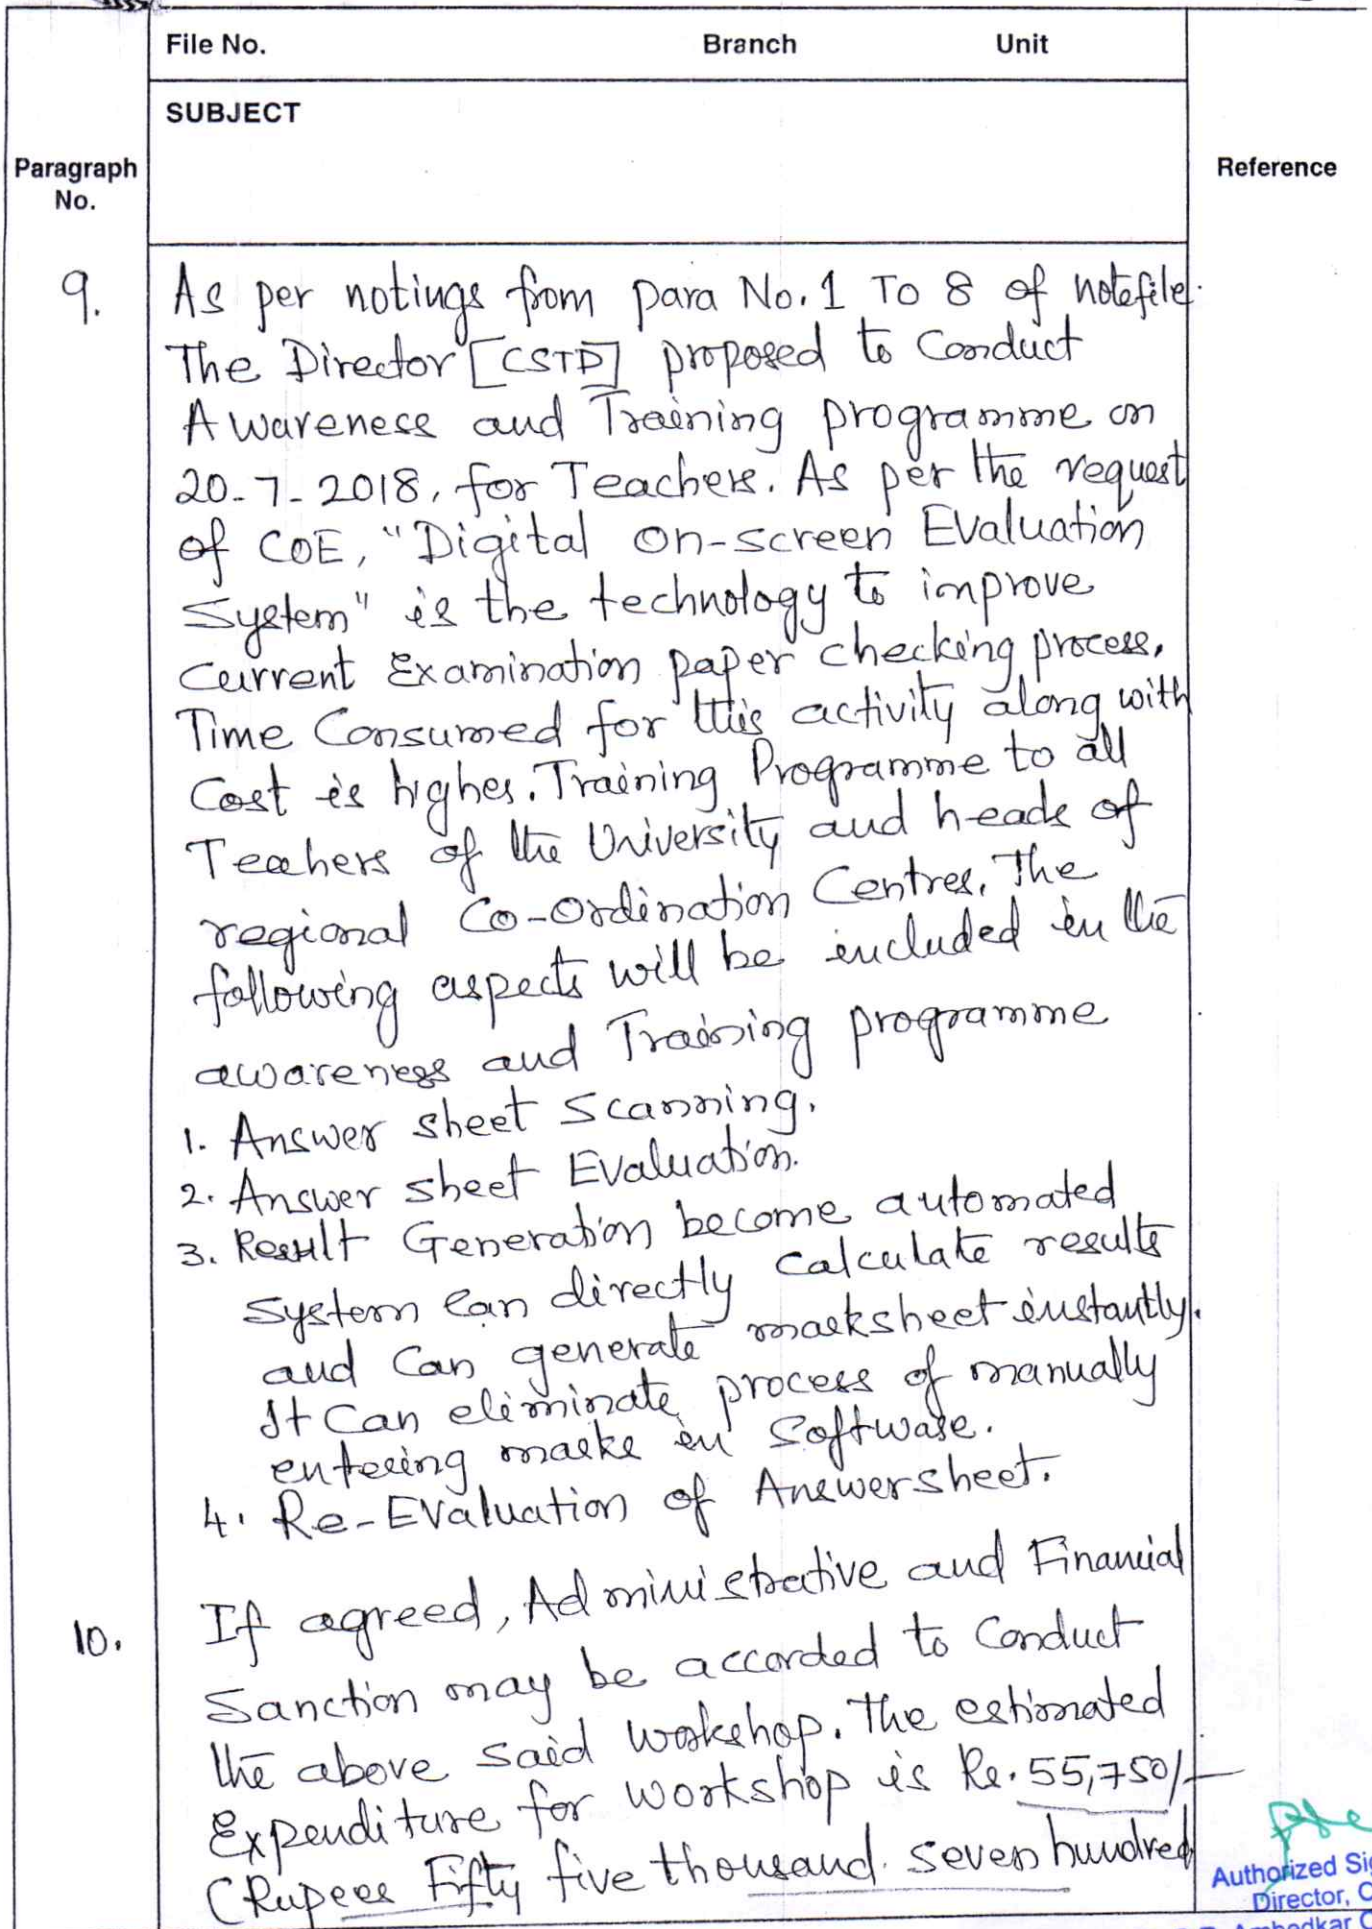 File No. Branch Unit
SUBJECT
Paragraph No.
Reference
9. As per notings from para No. 1 To 8 of notefile.
The Director [CSTD] proposed to Conduct
Awareness and Training programme on
20-7-2018, for Teachers. As per the request
of COE, "Digital on-screen Evaluation
System" is the technology to improve
Current Examination paper checking process,
Time Consumed for this activity along with
Cost is higher. Training Programme to all
Teachers of the University and heads of
regional Co-Ordination Centres. The
following aspects will be included in the
awareness and Training programme
1. Answer sheet Scanning.
2. Answer sheet Evaluation.
3. Result Generation become automated
system can directly calculate results
and can generate marksheet instantly.
It Can eliminate process of manually
entering marks in Software.
4. Re-Evaluation of Answersheet.
10. If agreed, Administrative and Financial
Sanction may be accorded to Conduct
the above said wokshop. The estimated
Expenditure for workshop is Rs. 55,750/-
(Rupees Fifty five thousand seven hundred
Authorized Si
Director, C
Ambedkar